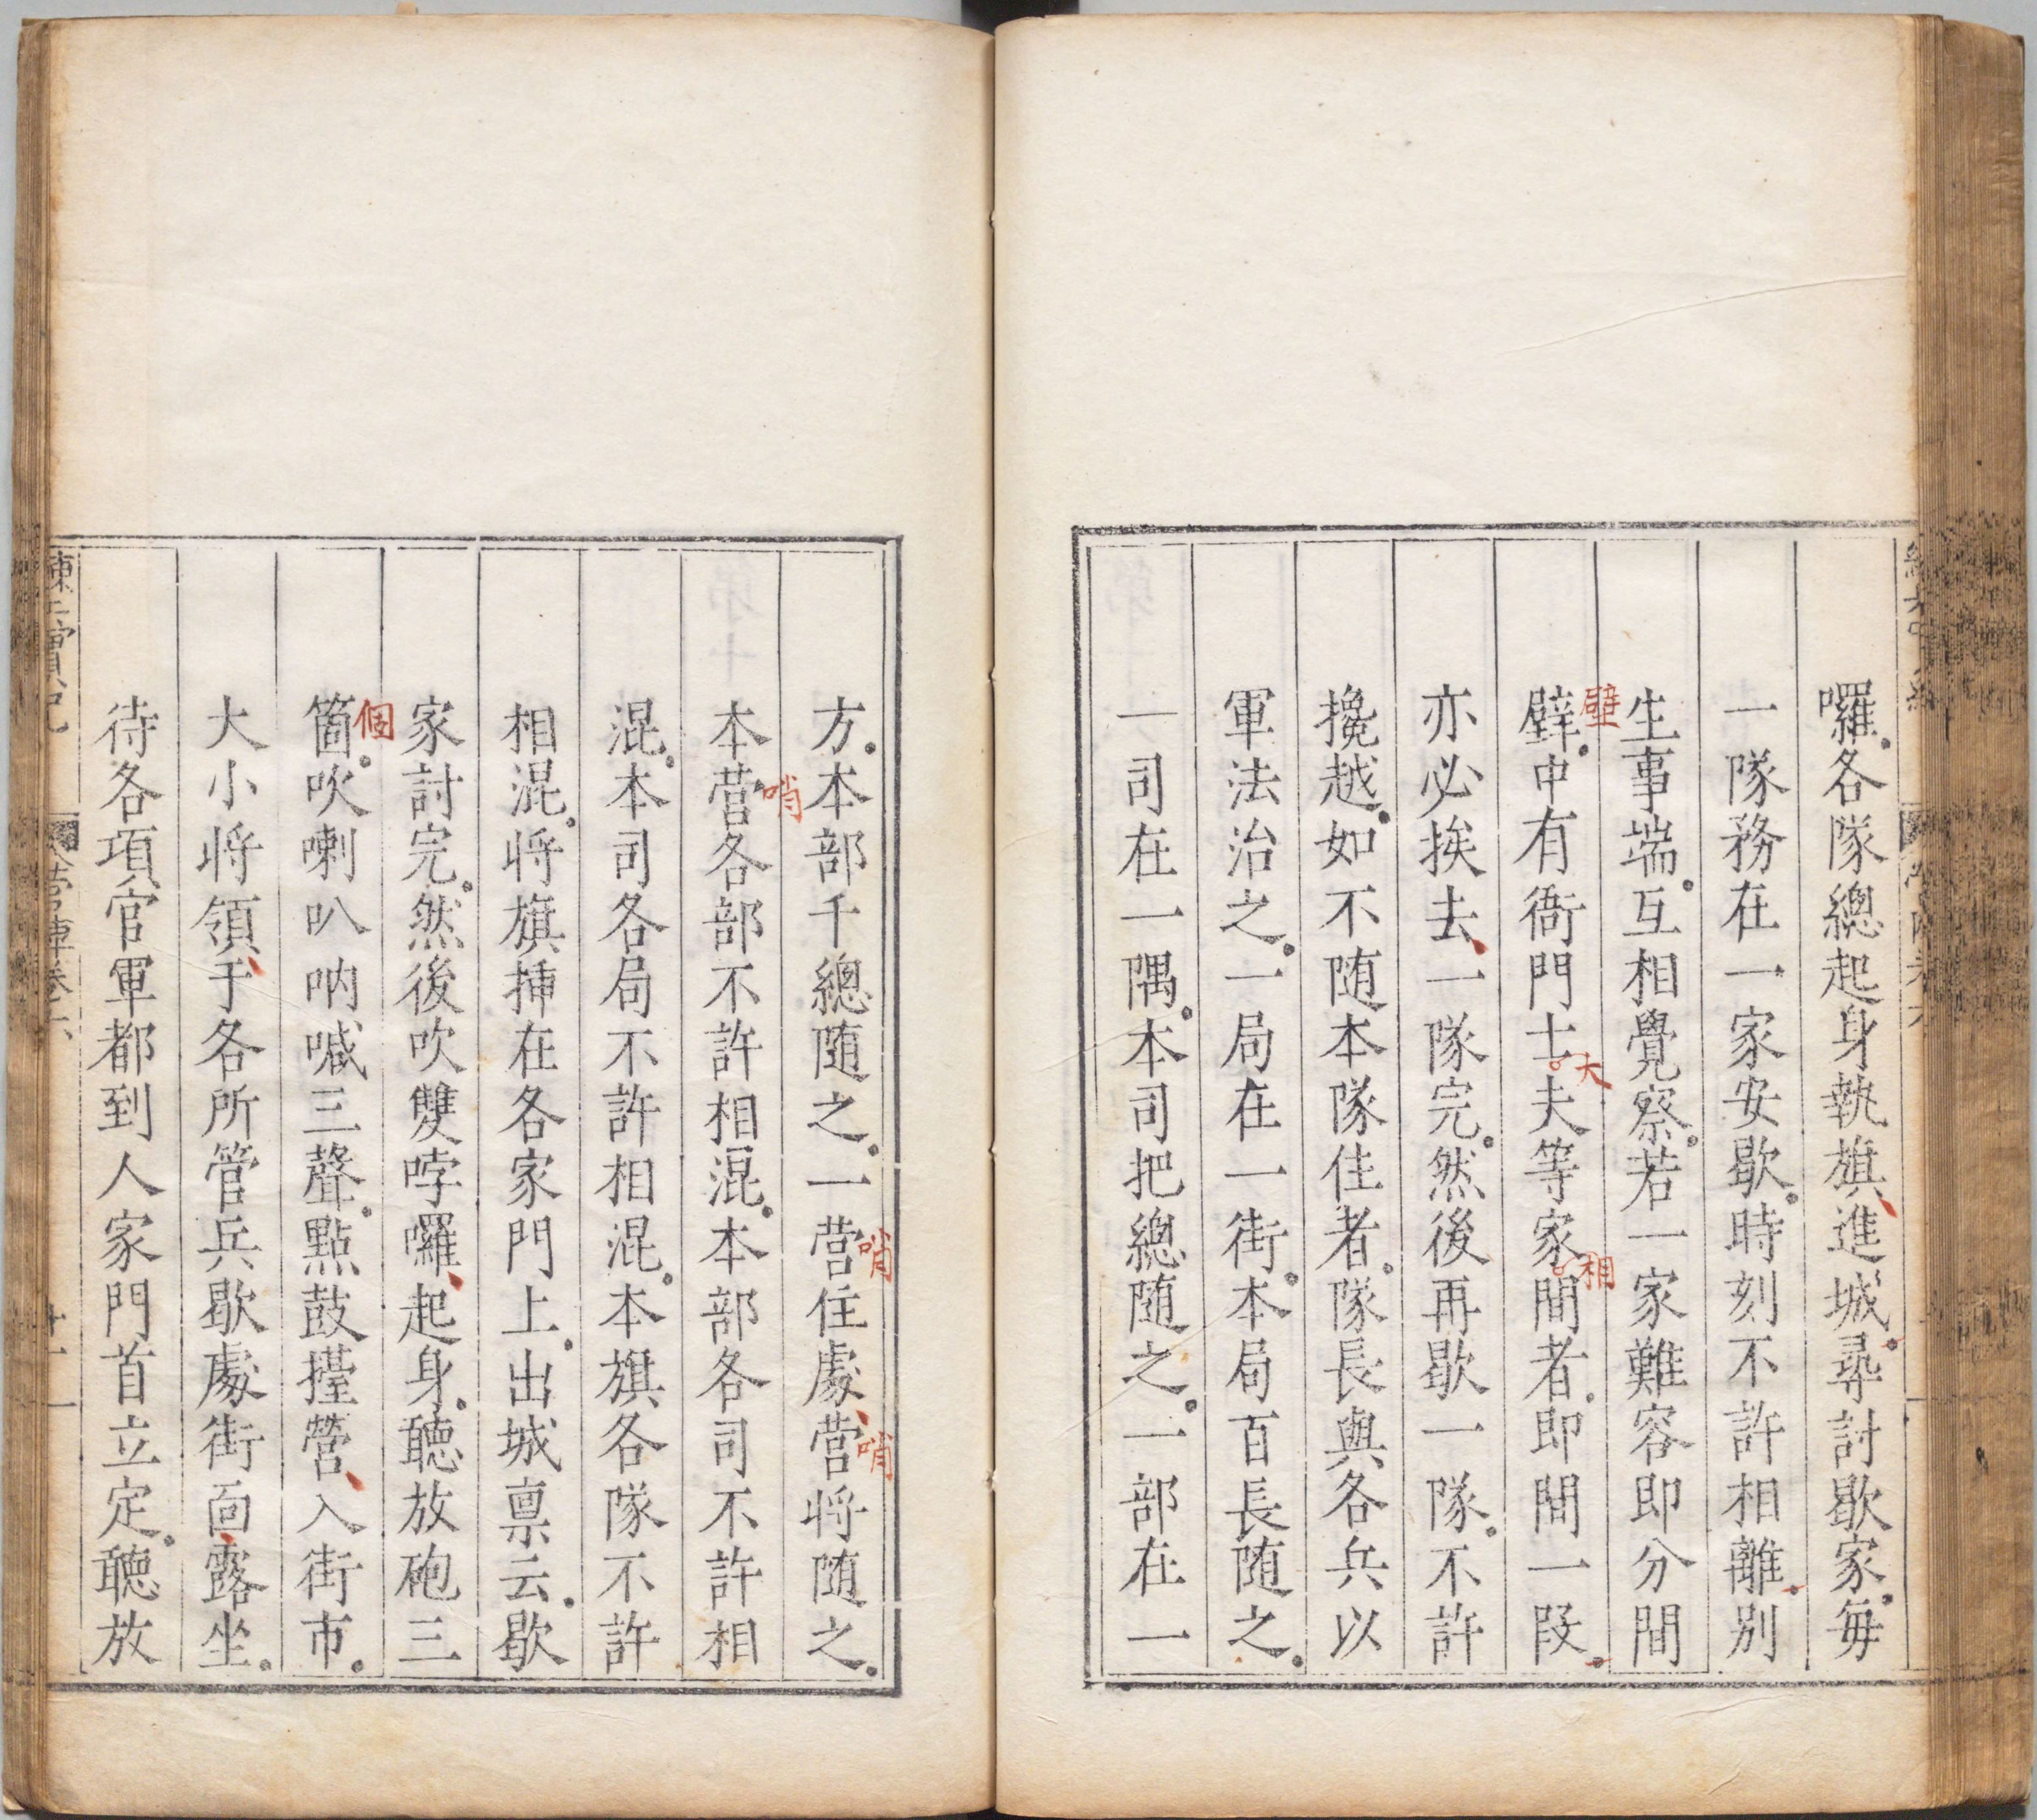 囉。各隊總起身執旗、進城。尋討歇家。每
一隊務在一家安歇。時刻不許相離。別
生事端。互相覺察。若一家難容即分間
壁
壁。中有衙門士夫等家間者。即間一段。
大
相
亦必挨去、一隊完。然後再歇一隊。不許
攙越。如不随本隊住者。隊長與各兵以
軍法治之。一局在一街。本局百長随之。
一司在一隅。本司把總随之。一部在一
方。本部千總随之。一营住處、营将随之。
哨
哨
本营各部不許相混。本部各司不許相
哨
混。本司各局不許相混。本旗各隊不許
相混。将旗揷在各家門上。出城禀云。歇
家討完。然後吹雙哱囉、起身。聽放砲三
箇。吹喇叭呐喊三聲。點鼓擡營、入街市。
個
大小将領、于各所管兵歇處街面、露坐。
待各項官軍都到人家門首立定。聽放